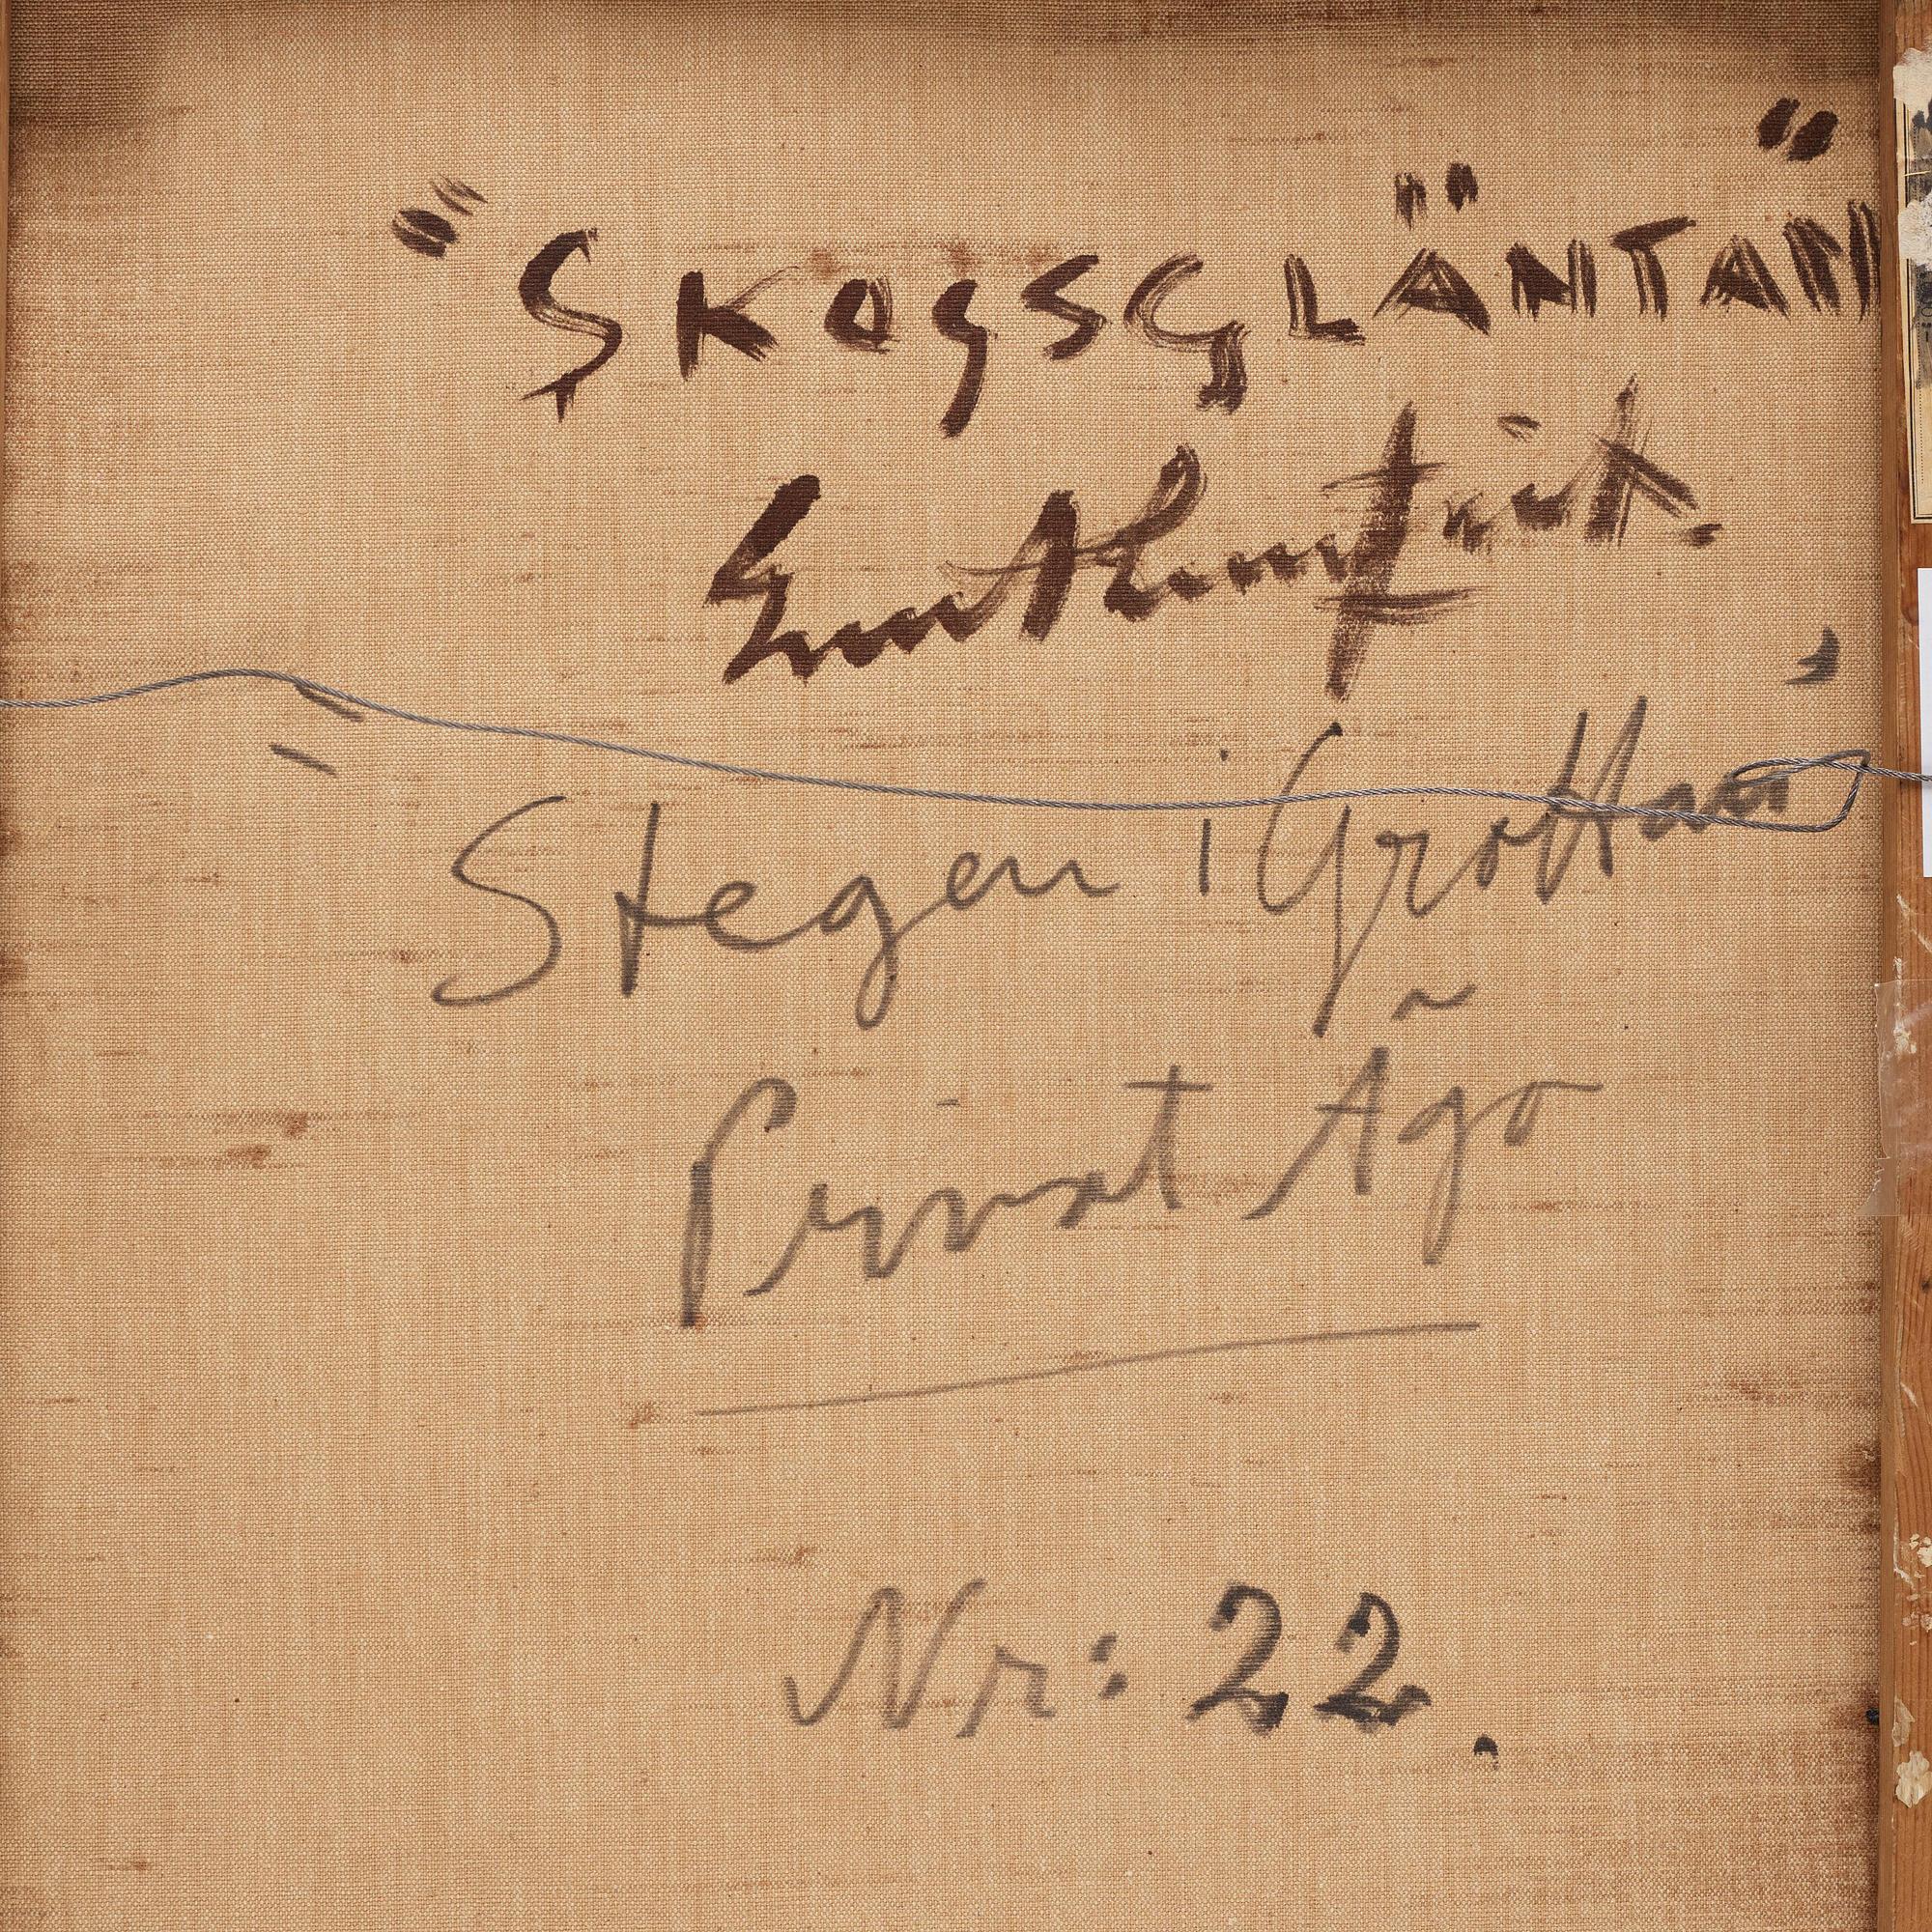 "SKOGSGLÄNTAN"
Evert Lundquist.
"Stegen i Grottan"
Privat Ägo
Nr: 22.